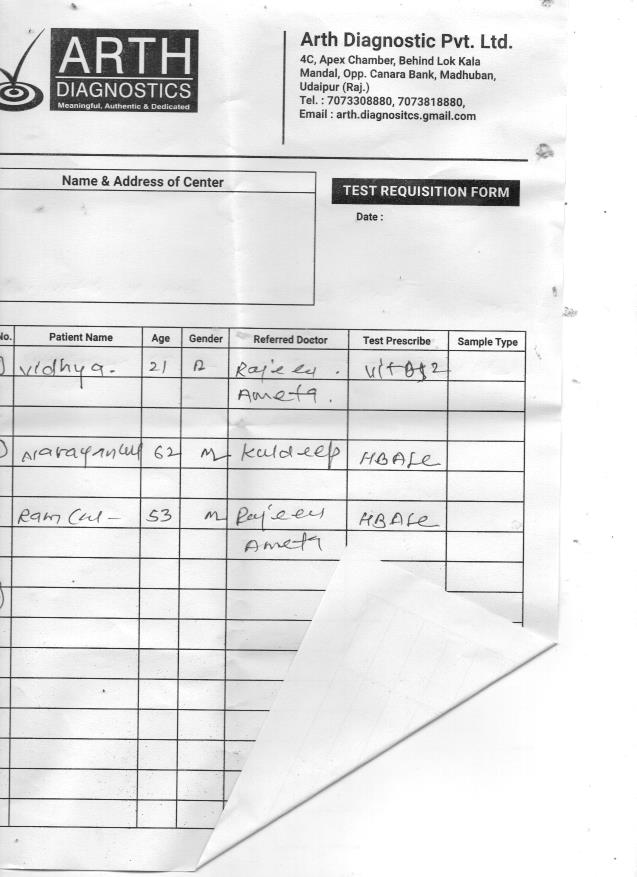 ARTH
DIAGNOSTICS
Meaningful, Authentic & Dedicated
Arth Diagnostic Pvt. Ltd.
4C, Apex Chamber, Behind Lok Kala
Mandal, Opp. Canara Bank, Madhuban,
Udaipur (Raj.)
Tel. : 7073308880, 7073818880,
Email : arth.diagnositcs.gmail.com
Name & Address of Center
TEST REQUISITION FORM
Date :
No. Patient Name Age Gender Referred Doctor Test Prescribe Sample Type
Vidhya. 21 Rajeev.
Ameta.
62 M Kuldeep HBA1c
Ram 53 M Rajeev HBA1c
Ameta